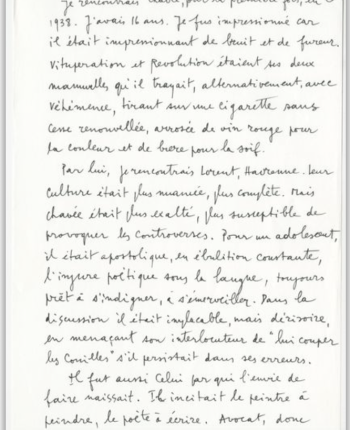 Je rencontrai Chavée, pour la première fois, en
1938. J'avais 16 ans. Je fus impressionné car
il était impressionnant de bruit et de fureur.
Vitupération et Révolution étaient ses deux
mamelles qu'il trayait, alternativement, avec
véhémence, tirant sur une cigarette sans
cesse renouvellée, arrosée de vin rouge pour
la couleur et de bière pour la soif.
Par lui, je rencontrai Lorent, Havrenne. Leur
culture était plus nuancée, plus complète. Mais
Chavée était plus exalté, plus susceptible de
provoquer les controverses. Pour un adolescent,
il était apostolique, en ébulition constante,
l'injure poétique sous la langue, toujours
prêt à s'indigner, à s'émerveiller. Dans la
discussion il était implacable, mais dérisoire,
en menaçant son interlocuteur de "lui couper
les Couilles" s'il persistait dans ses erreurs.
Il fut aussi Celui par qui l'envie de
faire naissait. Il incitait le peintre à
peindre, le poète à écrire. Avocat, donc